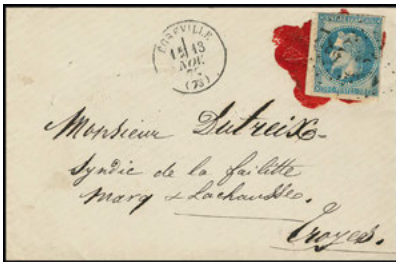 EGREVILLE
13
NOV.
(73)
Monsieur Dutreix
Syndic de la faillitte
Marq & Lachaussée.
Troyes.